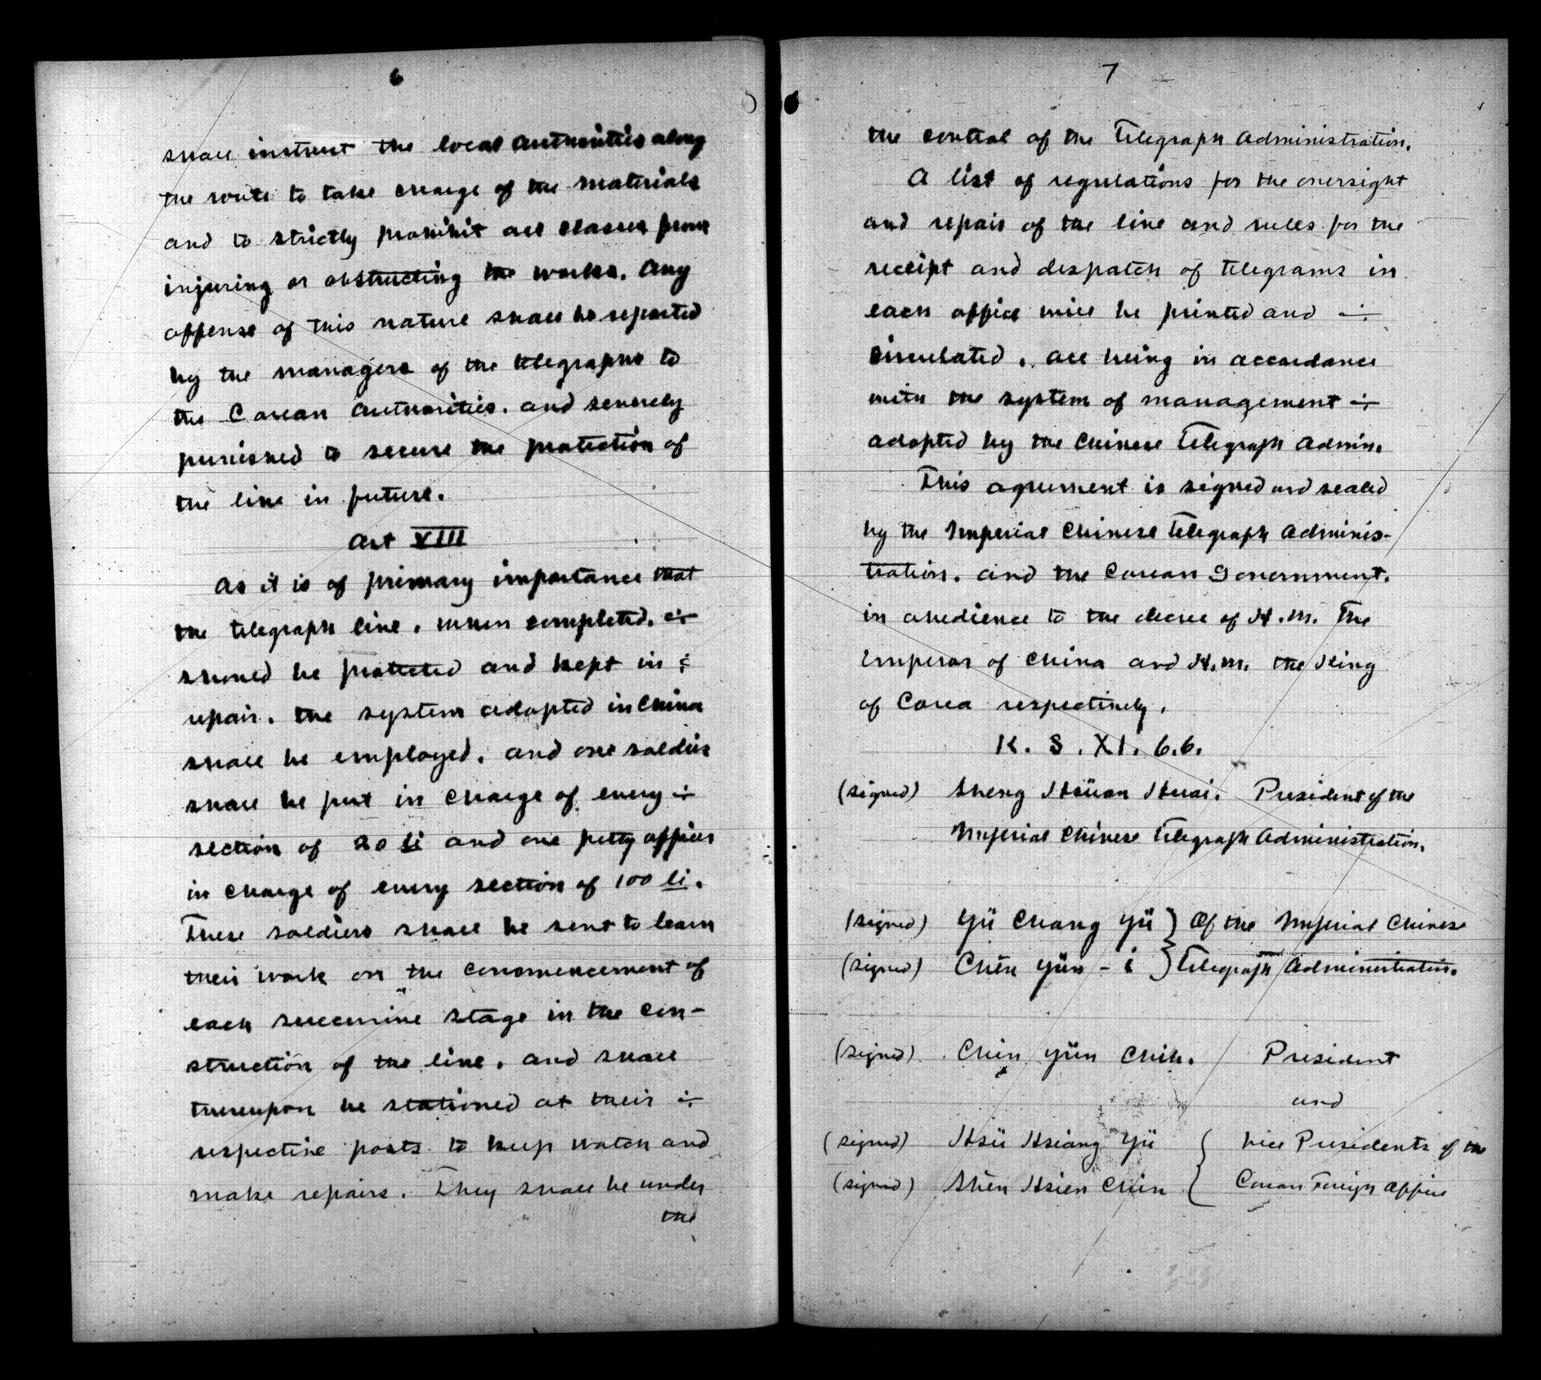 6
shall instruct the local authorities along
the route to take charge of the materials
and to strictly prohibit all classes from
injuring or obstructing the works. Any
offense of this nature shall be reported
by the managers of the telegraphs to
the Corean authorities. and severely
punished to secure the protection of
the line in future.
Art VIII
As it is of primary importance that
the telegraph line, when completed, ÷
should be protected and kept in ÷
repair. the system adopted in China
shall be employed. and one soldier
shall be put in charge of every ÷
section of 20 li and one petty officer
in charge of every section of 100 li.
These soldiers shall be sent to learn
their work on the commencement of
each successive stage in the con-
struction of the line. and shall
thereupon be stationed at their ÷
respective posts to keep watch and
make repairs. They shall be under
the
7
the control of the Telegraph Administration.
A list of regulations for the oversight
and repair of the line and rules for the
receipt and despatch of telegrams in
each office will be printed and ÷
circulated. all being in accordance
with the system of management ÷
adopted by the Chinese Telegraph Admin.
This agreement is signed and sealed
by the Imperial Chinese Telegraph Adminis-
tration. and the Corean Government.
in obedience to the decree of H.M. The
Emperor of China and H.M. the King
of Corea respectively.
K. S. XI. 6.6.
(signed) Sheng Hsüan Huai. President of the
Imperial Chinese Telegraph Administration.
(signed) Yü Chang Yü } Of the Imperial Chinese
(signed) Chên Yün - i } Telegraph Administration.
(signed) Chin Yün Chih. President
and
(signed) Hsü Hsiang Yü { Vice Presidents of the
(signed) Shên Hsien Chin { Corean Foreign Office